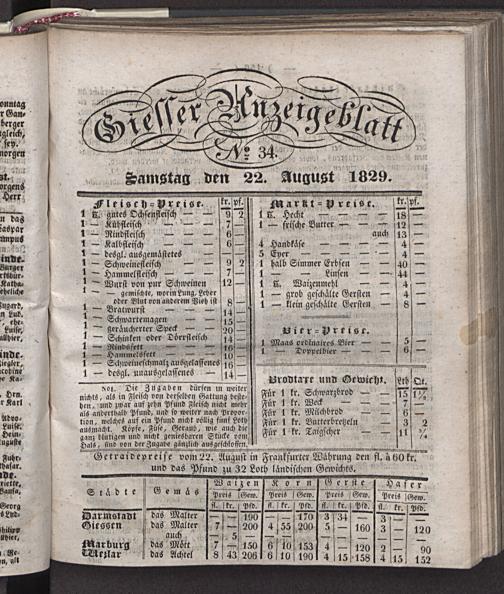 Giesser Anzeigeblatt
No. 34.
Samstag den 22. August 1829.
Fleisch-Preise. kr. pf.
1 ℔. gutes Ochsenfleisch — — 9 2
1 — Kuhfleisch — — — 7
1 — Rindfleisch — — — 6
1 — Kalbfleisch — — — 6
1 — desgl. ausgemästetes — —
1 — Schweinefleisch — — — 9 2
1 — Hammelfleisch — — — 7
1 — Wurst von pur Schweinen — 12
— gemischte, worin Lung, Leber
oder Blut von anderem Vieh ist 8 —
1 — Bratwurst — — — 14 —
1 — Schwartemagen — — 15 —
1 — geräucherter Speck — — 20 —
1 — Schinken oder Dörrfleisch — 14 —
1 — Rindsfett — — — 16 —
1 — Hammelsfett — — 10 —
1 — Schweineschmalz ausgelassenes 16 —
1 — desgl. unausgelassenes — 14 —
Not. Die Zugaben dürfen in weiter
nichts, als in Fleisch von derselben Gattung beste-
hen, und zwar auf zehn Pfund Fleisch nicht mehr
als anderthalb Pfund, und so weiter nach Propor-
tion, welches auf ein Pfund nicht völlig fünf Loth
ausmacht. Köpfe, Füß, Geräusch aber auch die
ganz blutigen und nicht genießbaren Stücke vom
Hals, sind von der Zugabe gänzlich ausgeschlossen.
Markt-Preise. kr. pf.
1 ℔. Hecht — — — 18 —
1 — frische Butter — — — 12 —
auch 13 —
4 Handkäse — — — — 4 —
5 Eyer — — — — 4 —
1 halb Simmer Erbsen — — 40 —
1 — — Linsen — — 44 —
1 ℔. Waizenmehl — — — 4 —
1 — grob geschälte Gersten — — 4 —
1 — klein geschälte Gersten — — 8 —
Bier-Preise.
1 Maas ordinaires Bier — — 5 —
1 — Doppelbier — — — 6 —
Brodtaxe und Gewicht. Lth Qt.
Für 1 kr. Schwarzbrod — — 15
Für 1 kr. Weck — — — 7
Für 1 kr. Milchbrod — — 6
Für 1 kr. Butterbretzeln — — 3 2
Für 1 kr. Taigscher — — 11
Getraidepreise vom 22. August in Frankfurter Währung den fl. à 60 kr.
und das Pfund zu 32 Loth ländischen Gewichts.
Städte Gemäs Waizen Korn Gerste Hafer
Preis Gew. Preis Gew. Preis Gew. Preis Gew.
fl. kr. Pfd. fl. kr. Pfd. fl. kr. Pfd. fl. kr. Pfd.
Darmstadt das Malter — — 190 — — 170 3 34 — 3 —
Giessen das Malter 7 — 200 4 55 200 5 — 160 3 — 120
auch — 5 —
Marburg das Mött 7 — 150 6 10 153 4 — 120 2 — 90
Wezlar das Achtel 8 43 206 6 10 190 4 15 158 4 15 152